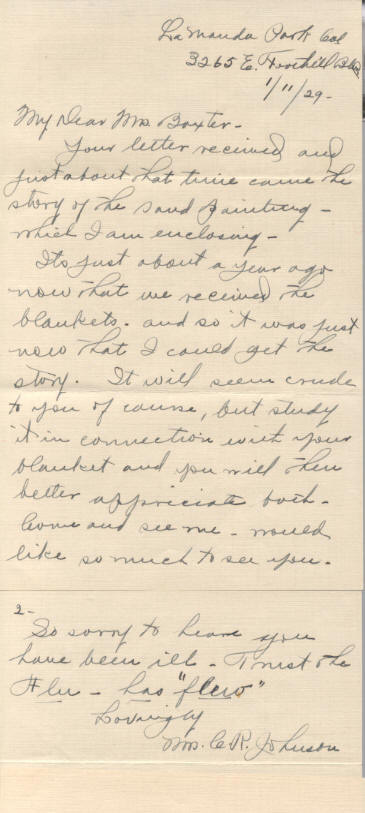 La Manda Park Cal
3265 E. Foothill Blvd
1/11/29-
My Dear Mrs Baxter-
Your letter received and
just about that time came the
story of the sand painting -
which I am enclosing -
Its just about a year ago
now that we received the
blankets. and so it was just
now that I could get the
story. It will seem crude
to you of course, but study
it in connection with your
blanket and you will then
better appriciate both -
Come and see me - would
like so much to see you.
2-
So sorry to hear you
have been ill - Trust the
Flu - has "flew"
Lovingly
Mrs. C. R. Johnson